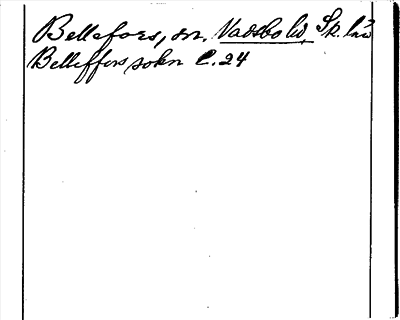 Bellefors, sn. Vadsbo hd, Sk. län
Belleffors sokn C. 24